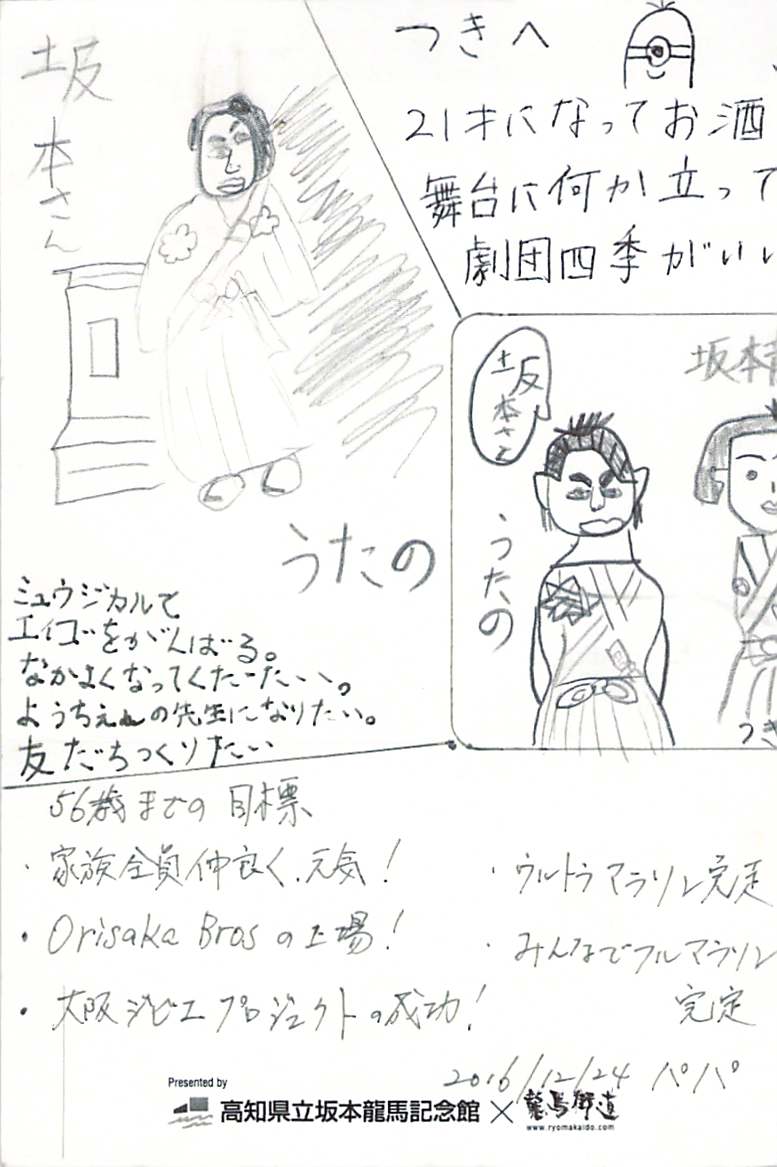 坂本さん
つきへ
21才になってお酒
舞台に何か立って
劇団四季がいい
坂本さん
坂本
うたの
うたの
つき
ミュウジカルで
エイゴをがんばる。
なかよくなってくたーたいい。
ようちえんの先生になりたい。
友だちつくりたい
56歳までの目標
・家族全員仲良く、元気!
・Orisaka Brosの上場!
・大阪ジビエプロジェクトの成功!
・ウルトラマラソン完走
・みんなでフルマラソン
完走
2016/12/24 パパ
Presented by
高知県立坂本龍馬記念館×龍馬街道
www.ryomakaido.com